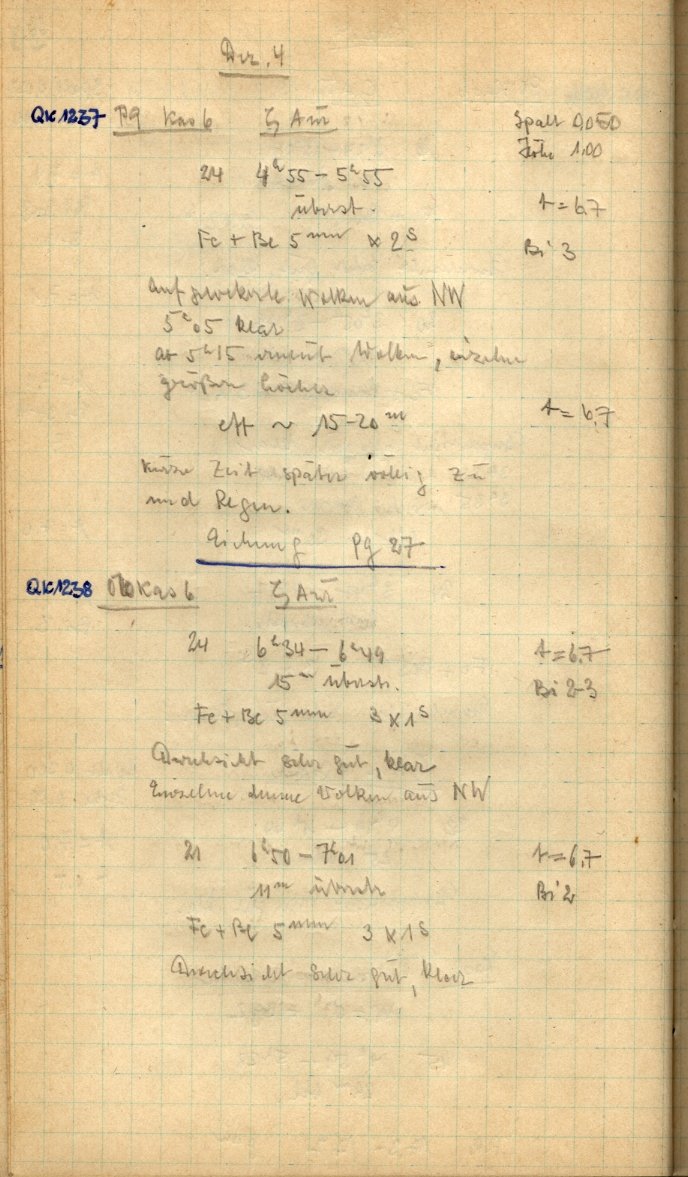 Dez. 4
QK1237 Pg Kas 6 ζ Aur Spalt 0,050
Höhe 1.00
24 4ʰ55 – 5ʰ55
überst. t = 6.7
Fe + Be 5ᵐᵐ × 2ˢ Bi 3
aufgelockerte Wolken aus NW
5ʰ05 klar
ab 5ʰ15 erneut Wolken, einzelne
größere Löcher
eff ~ 15-20ᵐ t = 6,7
kurze Zeit später völlig zu
und Regen.
Eichung Pg 27
QK1238 Kas 6 ζ Aur
24 6ʰ34 – 6ʰ49 t = 6.7
15ᵐ überst. Bi 2-3
Fe + Be 5ᵐᵐ 3 × 1ˢ
Durchsicht sehr gut, klar
Einzelne dünne Wolken aus NW
21 6ʰ50 – 7ʰ01 t = 6.7
11ᵐ überst Bi 2
Fe + Be 5ᵐᵐ 3 × 1ˢ
Durchsicht sehr gut, klar